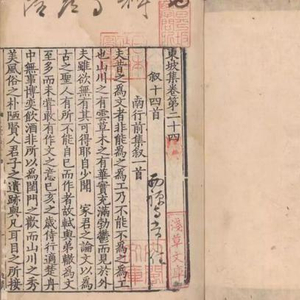 東坡集卷第二十四
叙十四首
南行前集叙一首
夫昔之為文者非能為之為工乃不能不為之為工
也山川之有雲草木之有華實充滿勃鬱而見於外
夫雖欲無有其可得耶自少聞家君之論文以為
古之聖人有所不能自已而作者故軾與弟轍為文
至多而未嘗敢有作文之意己亥之歲侍行適楚舟
中無事博奕飲酒非所以為閨門之歡而山川之秀
美風俗之朴陋賢人君子之遺跡與凡耳目之所接